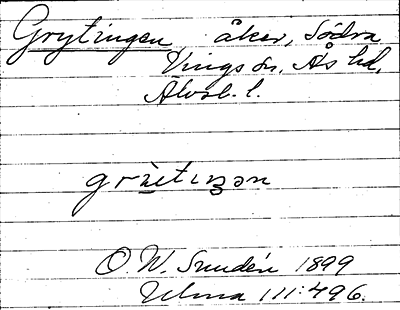 Grytingen, åker, Södra
Vings sn. Ås hd,
Älvsb. l.
grỳtıŋən
O. W. Sundén 1899
Ulma 111:496.